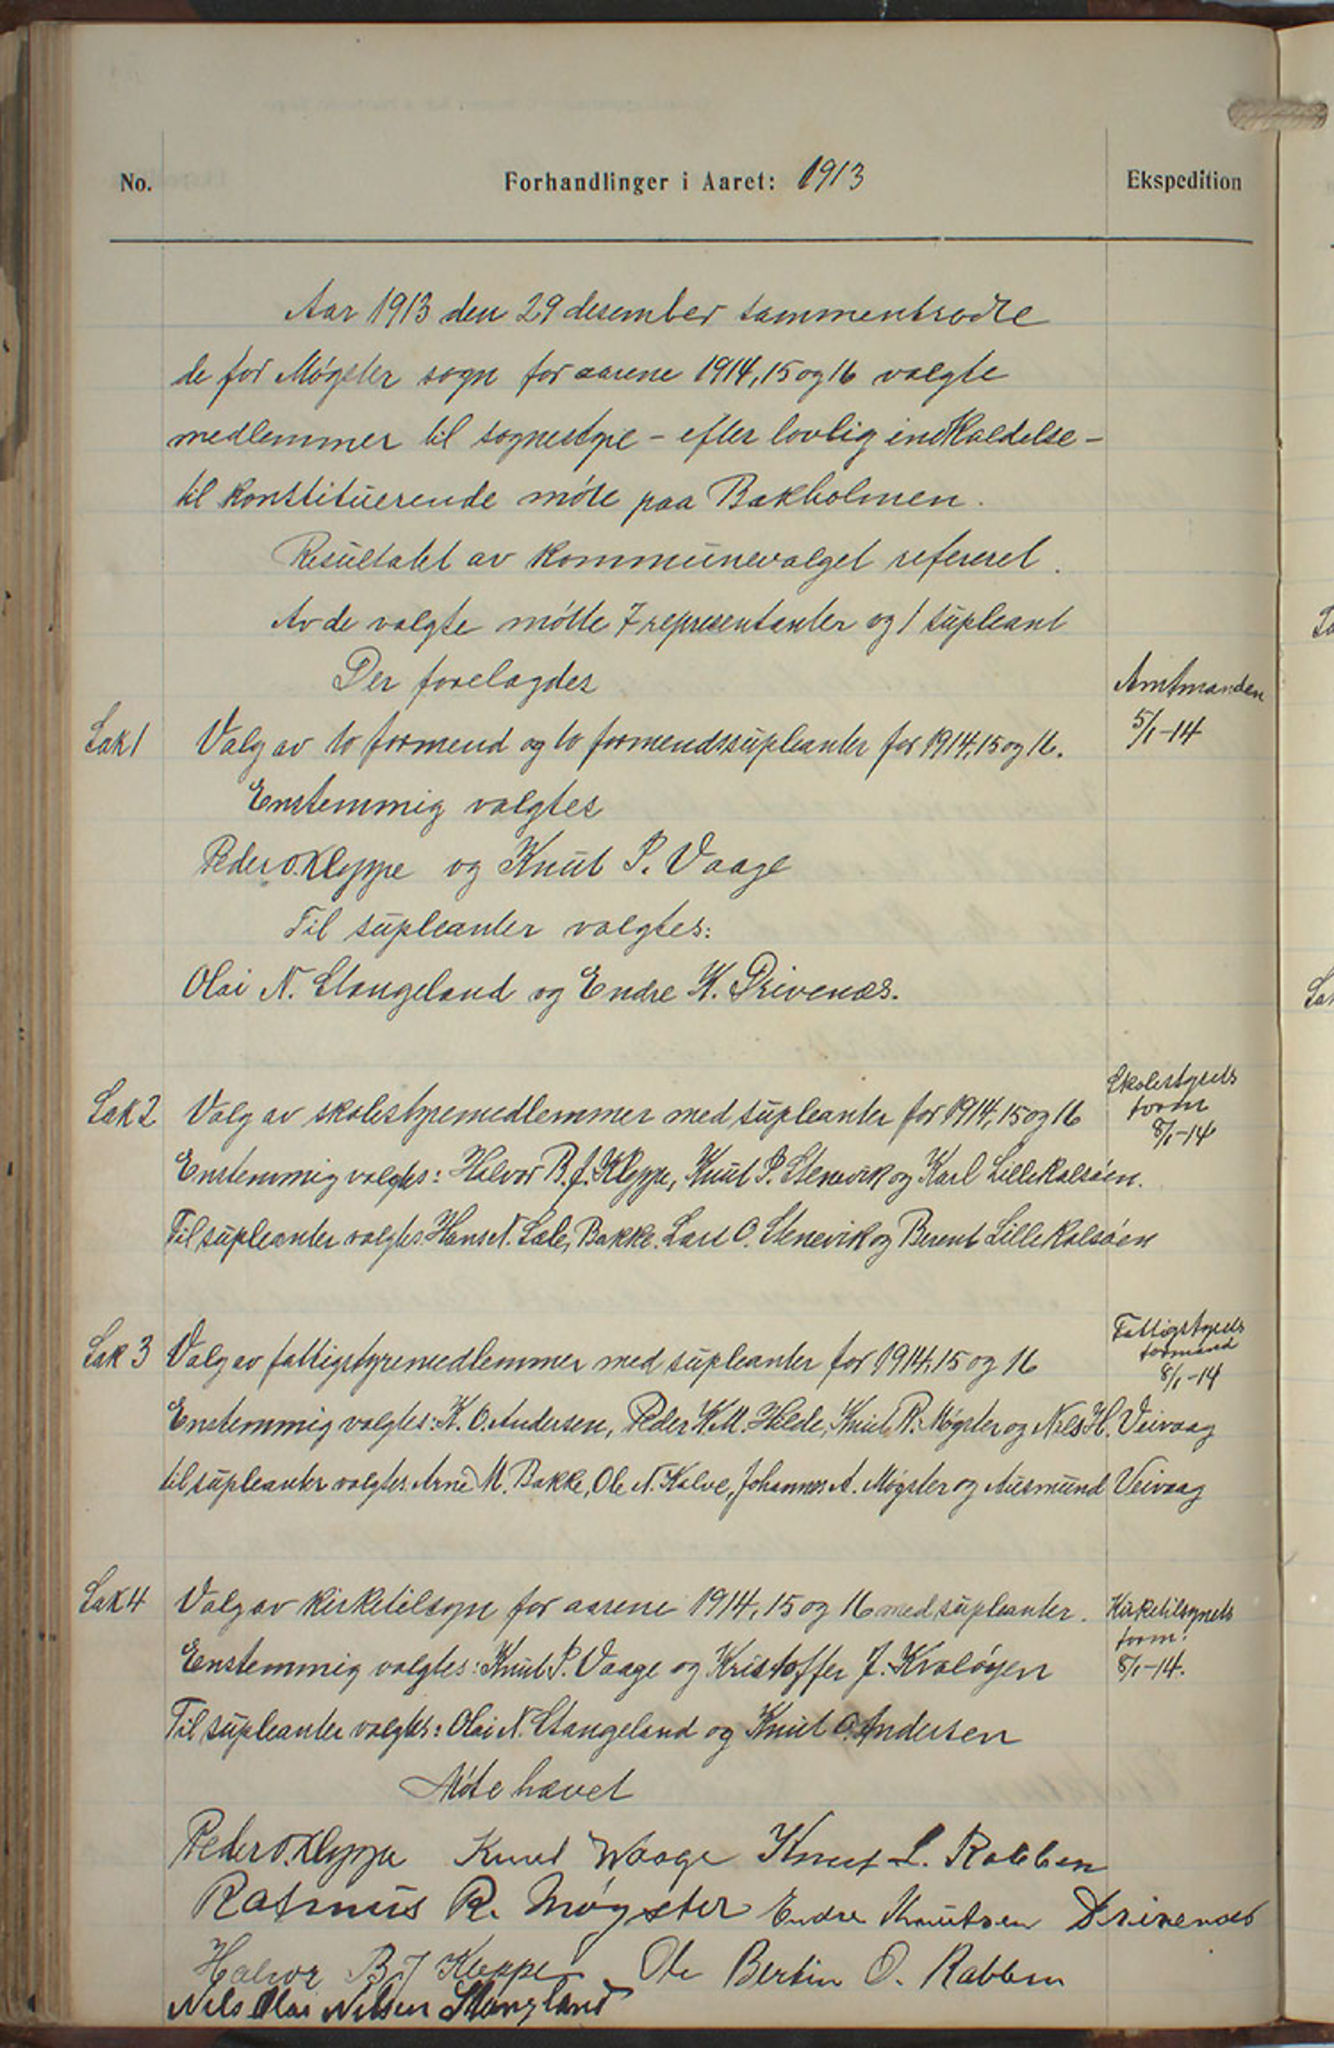 No. Forhandlinger i Aaret: 1913 Ekspedition
Aar 1913 den 29 desember sammentraadte
de for Møgster sogn for aarene 1914, 15 og 16 valgte
medlemmer til sognestyre – efter lovlig indkaldelse –
til konstituerende møte paa Bakholmen.
Resultatet av kommunevalget refereret.
Av de valgte møtte 7 representanter og 1 supleant
Der forelagdes
Amtmanden
5/1-14
Sak 1 Valg av to formend og to formendssupleanter for 1914, 15 og 16.
Enstemmig valgtes
Peder O. Kleppe og Knut P. Vaage
Til supleanter valgtes:
Olai N. Stangeland og Endre K. Drivenæs.
Skolestyrets
form
8/1-14
Sak 2 Valg av skolestyremedlemmer med supleanter for 1914, 15 og 16
Enstemmig valgtes: Halvor B. J. Kleppe, Knut P. Stenevik og Karl Lillekalsøen.
Til supleanter valgtes. Hans N. Sale, Bakke. Lars O. Stenevik og Berent Lillekalsøen
Fattigstyrets
formand
8/1-14
Sak 3 Valg av fattigstyremedlemmer med supleanter for 1914, 15 og 16
Enstemmig valgtes: K. O. Andersen, Peder K. M. Hilde, Knut R. Møgster og Nils H. Veivaag
til supleanter valgtes. Arne M. Bakke, Ole N. Kalve, Johannes A. Møgster og Ausmund Veivaag
Sak 4 Valg av kirketilsyn for aarene 1914, 15 og 16 med supleanter.
Kirketilsynets
form.
8/1-14.
Enstemmig valgtes: Knut P. Vaage og Kristoffer J. Kvaløyen
Til supleanter valgtes: Olai N. Stangeland og Knut O. Andersen
Møte hævet
Peder O. Kleppe Knut Waage Knut L. Rabben
Rasmus R. Møgster Endre Knutsen Drivenæs
Halvor B J Kleppe Ole Bertin O. Rabben
Nils Olai Nilsen Stangland